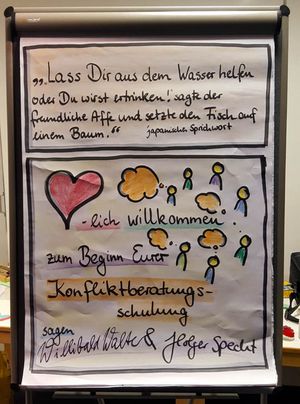 „Lass Dir aus dem Wasser helfen
oder Du wirst ertrinken!" sagte der
freundliche Affe und setzte den Fisch auf
einem Baum."
japanischer Sprichwort
-lich willkommen
zum Beginn Eurer
Konfliktberatungs-
schulung
sagen
Willibald Walter & Holger Specht